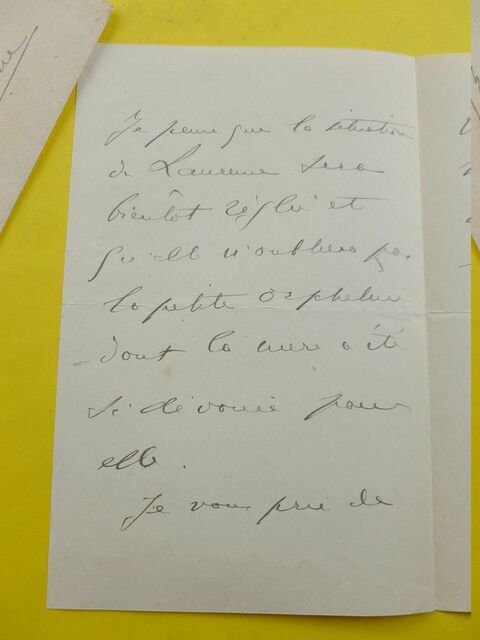 Je pense que la situation
de Laurence sera
bientôt réglée et
qu'elle n'oubliera pas
la petite orpheline
dont la mère a été
si dévouée pour
elle.
Je vous prie de